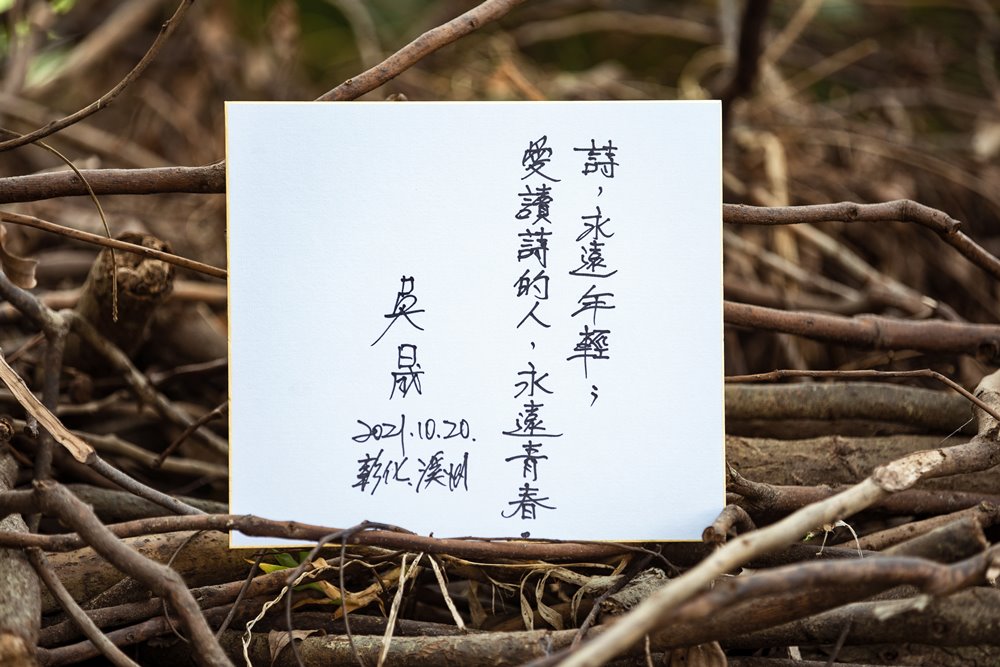 詩，永遠年輕；
愛讀詩的人，永遠青春
吳晟
2021.10.20.
彰化、溪州